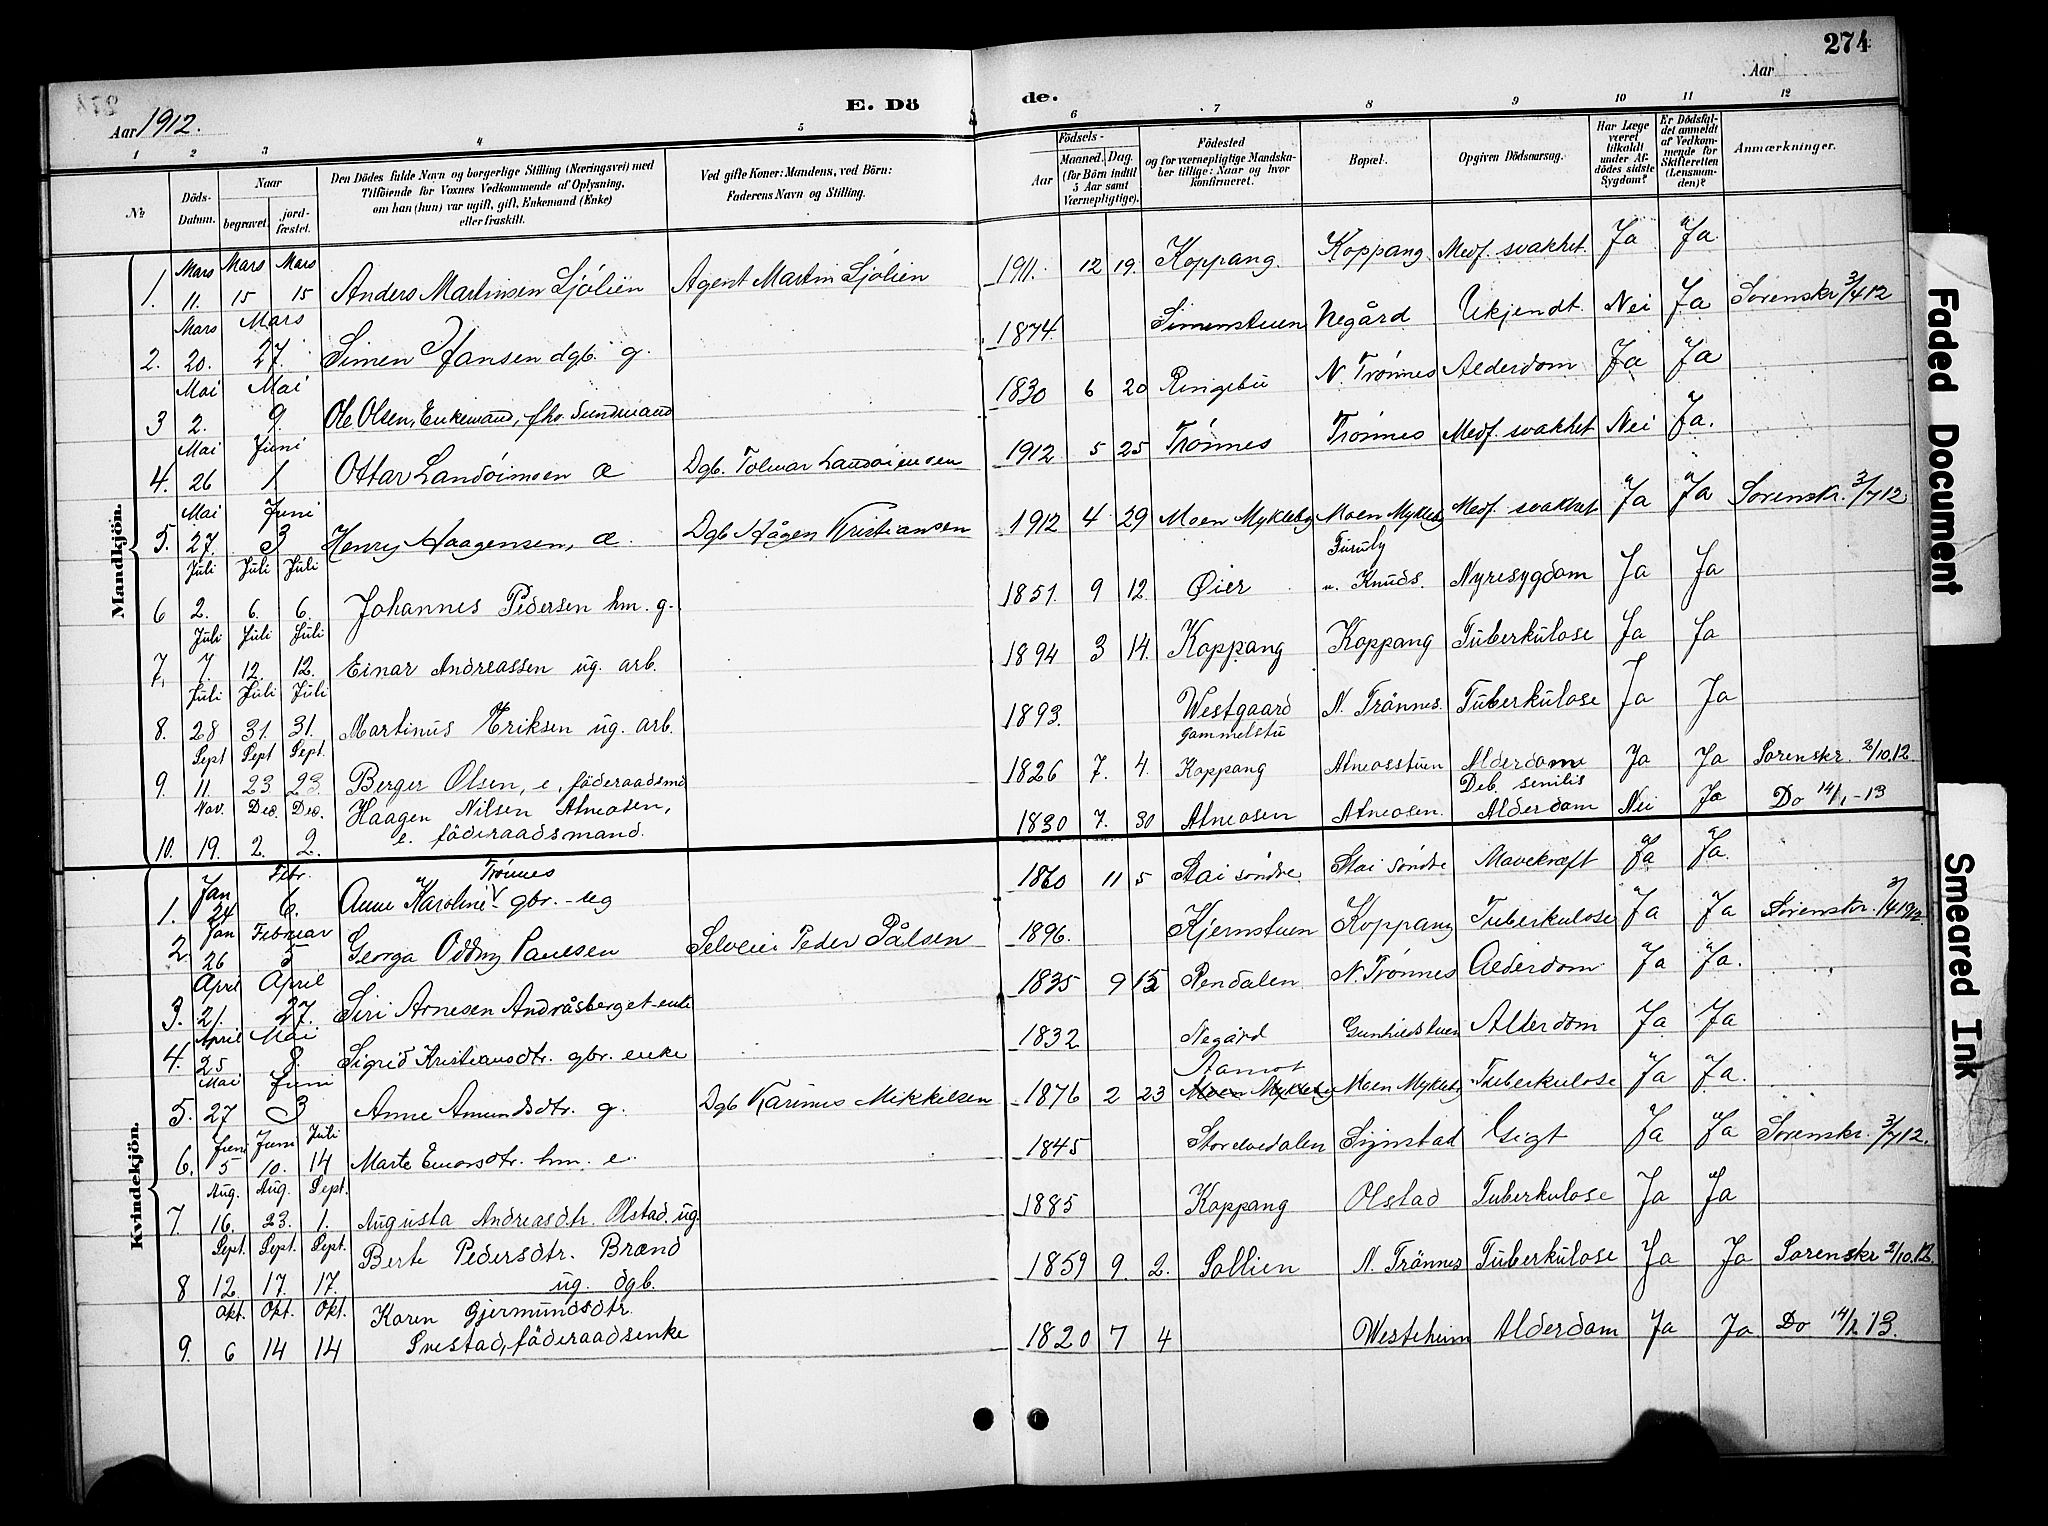 274
Aar
E. Dö de.
Aar 1912.
1 2 3 4 5 6 7 8 9 10 11 12
№ Döds-Datum. Naar begravet. jordfæstet. Den Dödes fulde Navn og borgerlige Stilling (Næringsvei) med Tilföiende for Voxnes Vedkommende af Oplysning, om han (hun) var ugift, gift, Enkemand (Enke) eller fraskilt. Ved gifte Koner: Mandens, ved Börn: Faderens Navn og Stilling. Födsels- Aar Maaned. Dag. (for Börn indtil 5 Aar samt Værnepligtige). Födested og for værnepligtige Mandskaber tillige: Naar og hvor konfirmeret. Bopæl. Opgiven Dödsaarsag. Har Læge været tilkaldt under Afdödes sidste Sygdom? Er Dödsfaldet anmeldt af Vedkommende for Skifteretten (Lensmanden)? Anmærkninger.
Mandkjön.
1. Mars 11. Mars 15 Mars 15 Anders Martinsen Sjölien Agent Martin Sjölien 1911. 12 19. Koppang. Koppang. Medf. svakhet. Ja Ja.
2. Mars 20. Mars 27. Simen Hansen dgb. g. 1874. Simenstuen Negård Ukjendt. Nei Ja Sorenskr. 3/4 12
3 Mai 2. Mai 9. Ole Olsen, Enkemand, fho. Sundmand 1830 6 20 Ringebu N. Trönnes Alderdom Ja Ja
4. Mai 26 Juni 1 Ottar Landöimsen æ Dgb. Tolmar Landöiensen 1912 5 25 Trönnes Trönnes Medf. svakhet Nei Ja.
5. Mai 27. Juni 3 Henry Haagensen, æ. Dgb Hågen Kristiansen 1912 4 29 Moen Mykleby Moen Mykleby Medf. svakhet Ja Ja Sorenskr. 3/7 12
6 Juli 2. Juli 6. Juli 6. Johannes Pedersen hm. g. 1851. 9 12. Øier Furuly u. Knuds. Nyresygdom Ja Ja
7, Juli 7. Juli 12. Juli 12. Einar Andreassen ug. arb. 1894 3 14. Koppang Koppang Tuberkulose Ja Ja
8. Juli 28 Juli 31. Juli 31. Martinus Eriksen ug. arb. 1893. Westgaard gammelstu N. Trönnes. Tuberkulose Ja Ja
9. Sept 11. Sept 23 Sept. 23. Berger Olsen, e, föderaadsmd 1826 7. 4. Koppang Atneosstuen Alderdom Deb. senilis Ja Ja Sorenskr. 2/10.12
10. Nov. 19. Des. 2. Des. 2. Haagen Nilsen Atneosen, e. föderaadsmand. 1830 7. 30 Atneosen Atneosen. Alderdom Nei Ja Do 14/1-13
Kvindekjön.
1. Jan 24 Febr. 6. Anne Karoline Trönnes gbr. - ug 1860 11 5 Stai söndre. Stai söndre Mavekræft Ja Ja.
2. Jan 26 Februar 5 Georga Odding Paulsen Selveier Peder Pålsen 1896. Kjernstuen Koppang Tuberkulose Ja Ja Sorenskr. 3/4 1912
3. April 21. April 27. Siri Arnesen Andråsberget enke 1835 9 15 Rendalen N. Trönnes Alderdom. Ja Ja.
4. April 25 Mai 8. Sigrid Kristiansdtr. gbr. enke 1832 Negård Gunhildstuen Alderdom Ja Ja
5. Mai 27 Juni 3 Anne Amundsdtr. g. Dgb Karinus Mikkelsen 1876 2 23 Aamot Moen Mykleby Moen Mykleby Tuberkulose Ja Ja.
6. Juni 5 Juni 10. Juli 14 Marte Emorsdtr. hm. e. 1845 Storelvedalen Sijnstad Gigt Ja Ja Sorenskr. 3/7 12.
7. Aug. 16. Aug. 23. Sept. 1. Augusta Andreasdtr. Olstad. ug. 1885 Koppang Olstad Tuberkulose Ja Ja
8 Sept. 12. Sept. 17. Sept. 17. Berte Pedersdtr. Brænd ug. dgb. 1859 9. 2. Sollien N. Trönnes Tuberkulose Ja Ja Sorenskr 2/10.12.
9. Okt. 6 Okt. 14 Okt. 14 Karen Gjermundsdtr. Svestad, föderaadsenke 1820 7 4 Westeheim Alderdom Ja Ja Do 14/1 13.
Faded Document
Smeared Ink